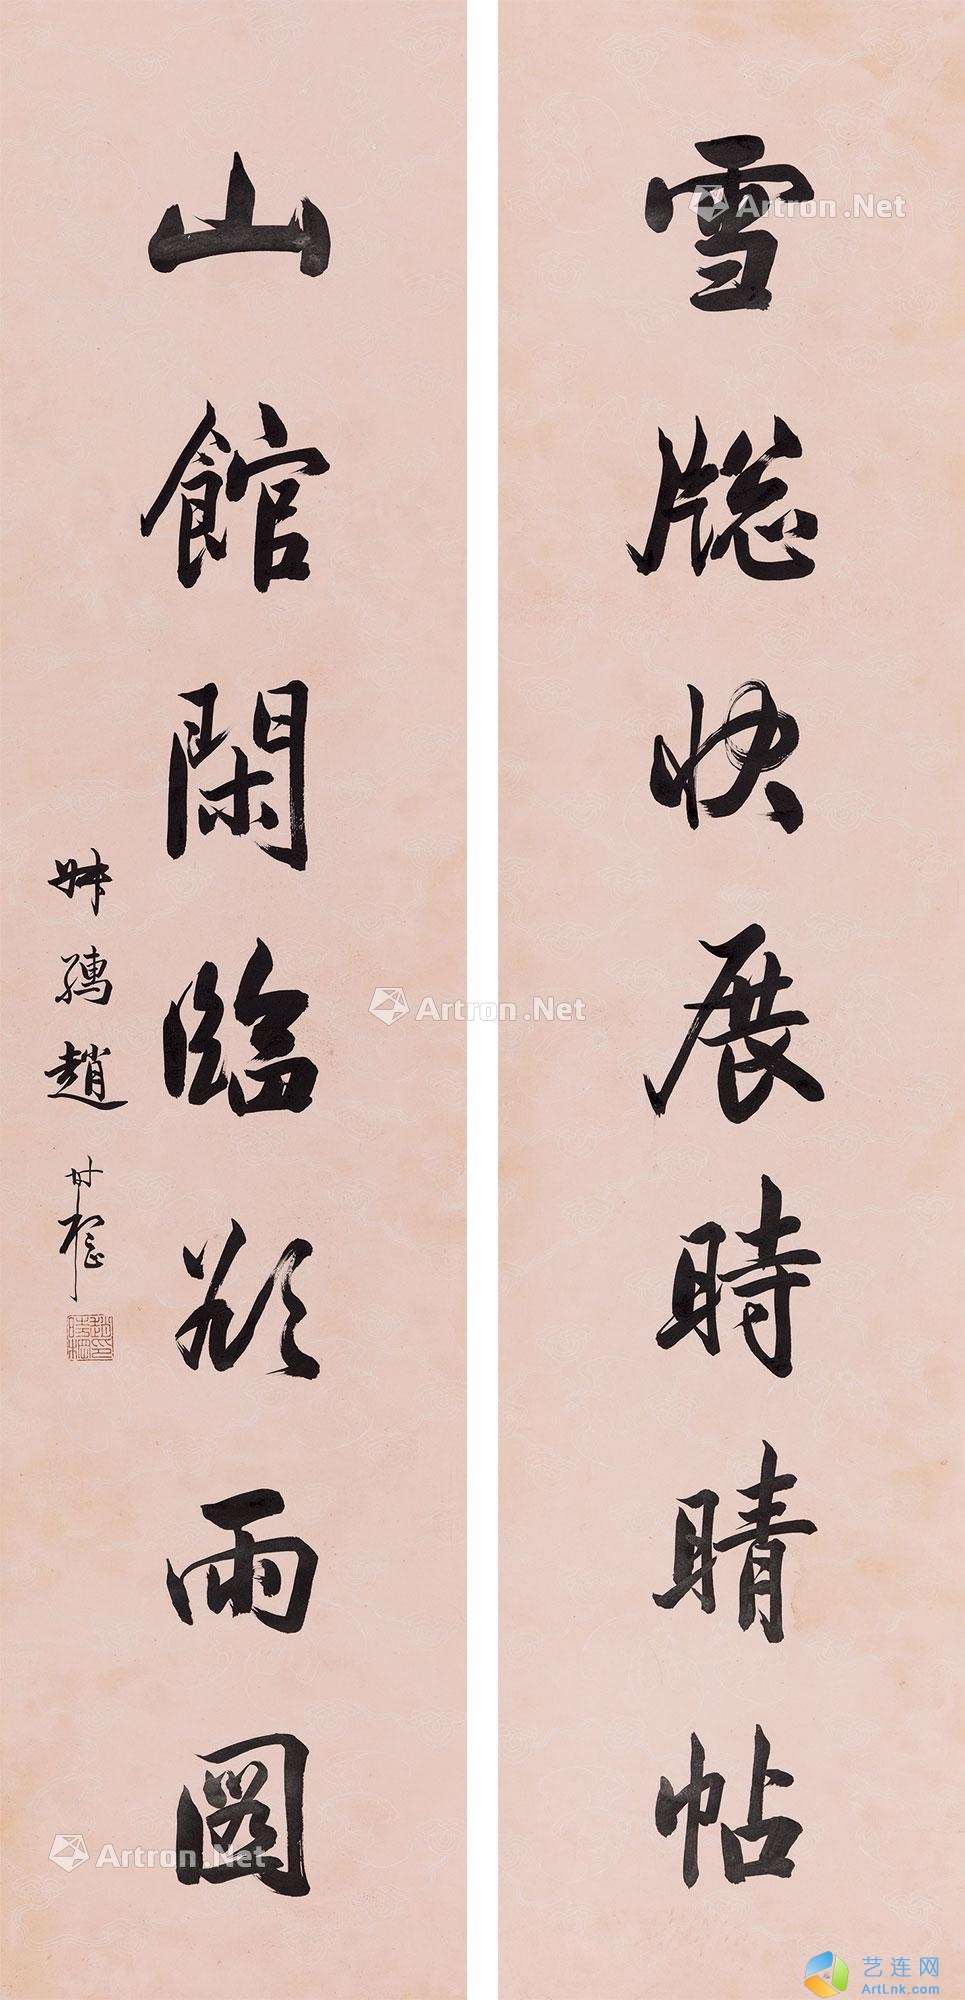 雪牕快展時晴帖
山館閑臨欲雨圖
叔孺趙時棡
趙時棡印
Artron.Net
Artron.Net
Artron.Net
艺连网
ArtLnk.com